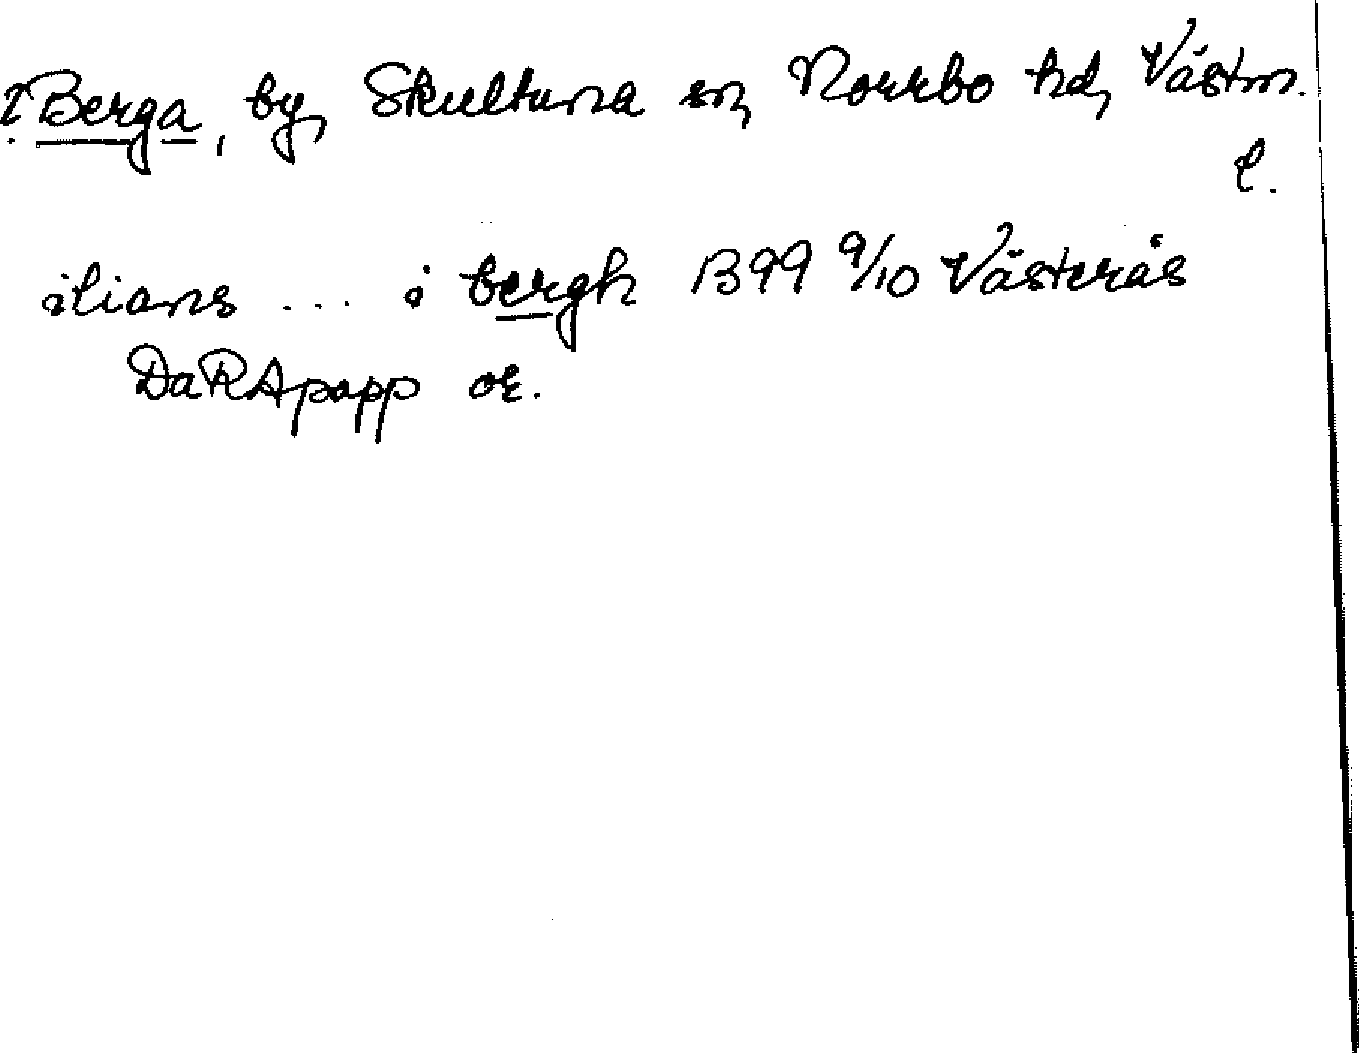 ? Berga, by, Skultuna sn, Norrbo hd, Västm.
l.
ilians ... i bergh 1399 9/10 Västerås
DaRApapp or.